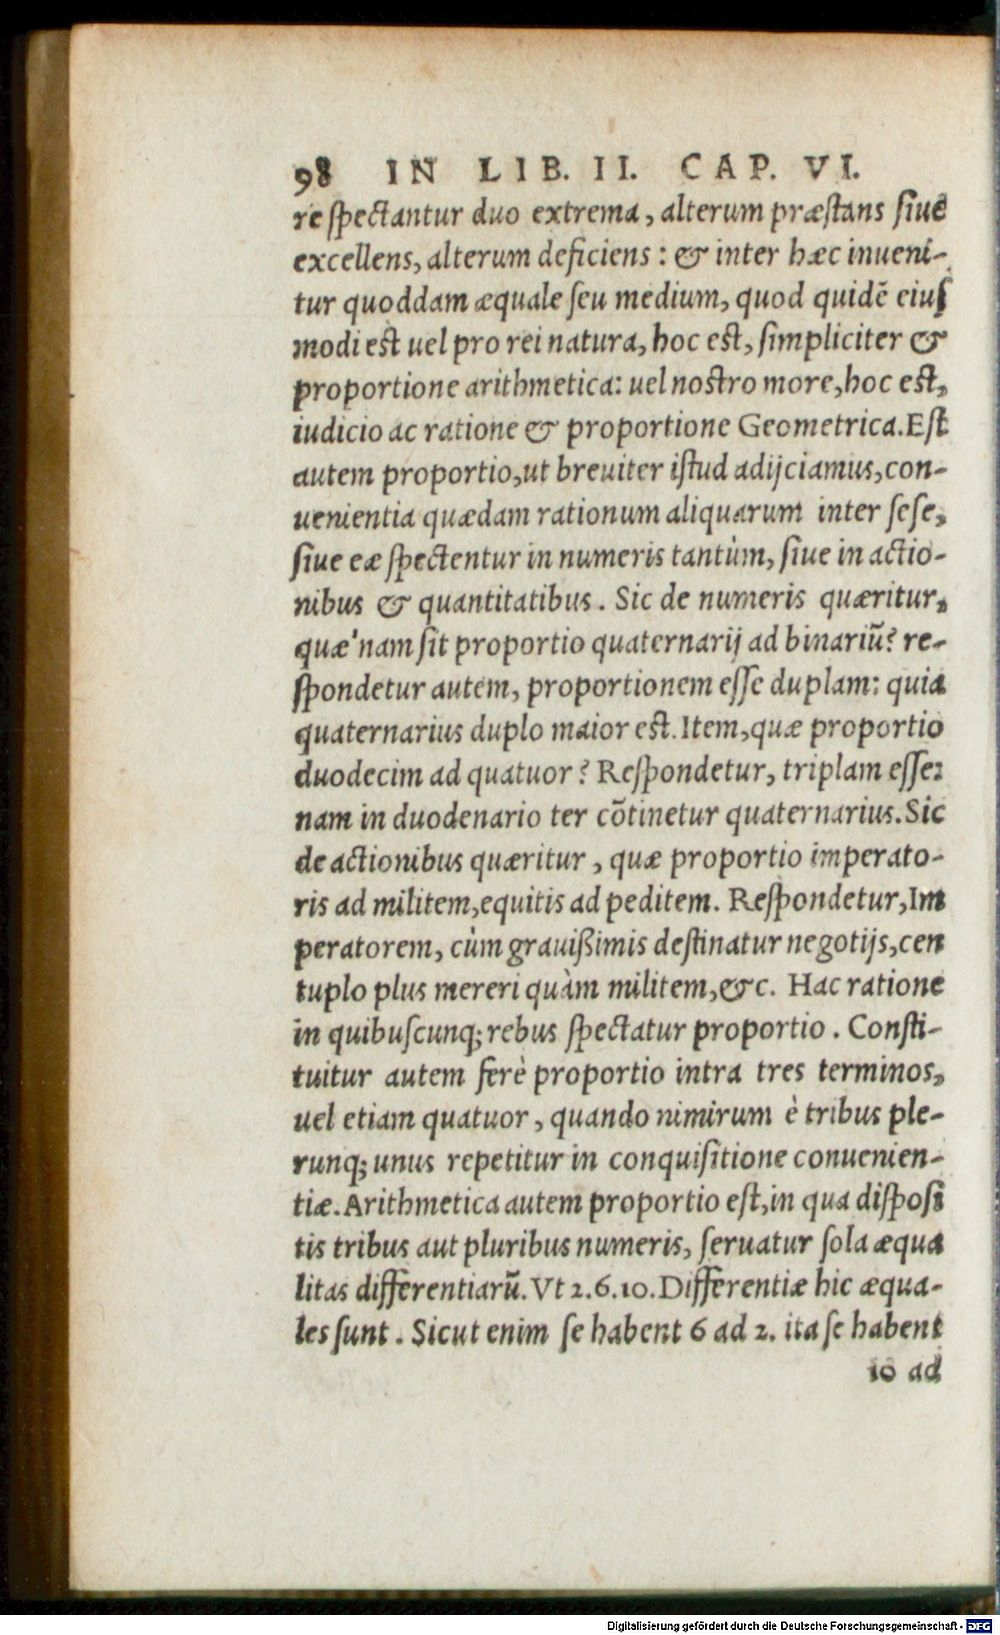 98 IN LIB. II. CAP. VI.
re spectantur duo extrema, alterum præstans siue
excellens, alterum deficiens : & inter hæc inueni-
tur quoddam æquale seu medium, quod quidē eius
modi est uel pro rei natura, hoc est, simpliciter &
proportione arithmetica: uel nostro more, hoc est,
iudicio ac ratione & proportione Geometrica. Est
autem proportio, ut breuiter istud adijciamus, con-
uenientia quædam rationum aliquarum inter sese,
siue eæ spectentur in numeris tantùm, siue in actio-
nibus & quantitatibus. Sic de numeris quæritur,
quæ'nam sit proportio quaternarij ad binariũ? re-
spondetur autem, proportionem esse duplam: quia
quaternarius duplo maior est. Item, quæ proportio
duodecim ad quatuor? Respondetur, triplam esse:
nam in duodenario ter cõtinetur quaternarius. Sic
de actionibus quæritur, quæ proportio imperato-
ris ad militem, equitis ad peditem. Respondetur, Im
peratorem, cùm grauißimis destinatur negotijs, cen
tuplo plus mereri quàm militem, &c. Hac ratione
in quibuscunq; rebus spectatur proportio. Consti-
tuitur autem ferè proportio intra tres terminos,
uel etiam quatuor, quando nimirum è tribus ple-
runq; unus repetitur in conquisitione conuenien-
tiæ. Arithmetica autem proportio est, in qua disposi
tis tribus aut pluribus numeris, seruatur sola æqua
litas differentiarũ. Vt 2. 6. 10. Differentiæ hic æqua-
les sunt. Sicut enim se habent 6 ad 2. ita se habent
10 ad
Digitalisierung gefördert durch die Deutsche Forschungsgemeinschaft - DFG